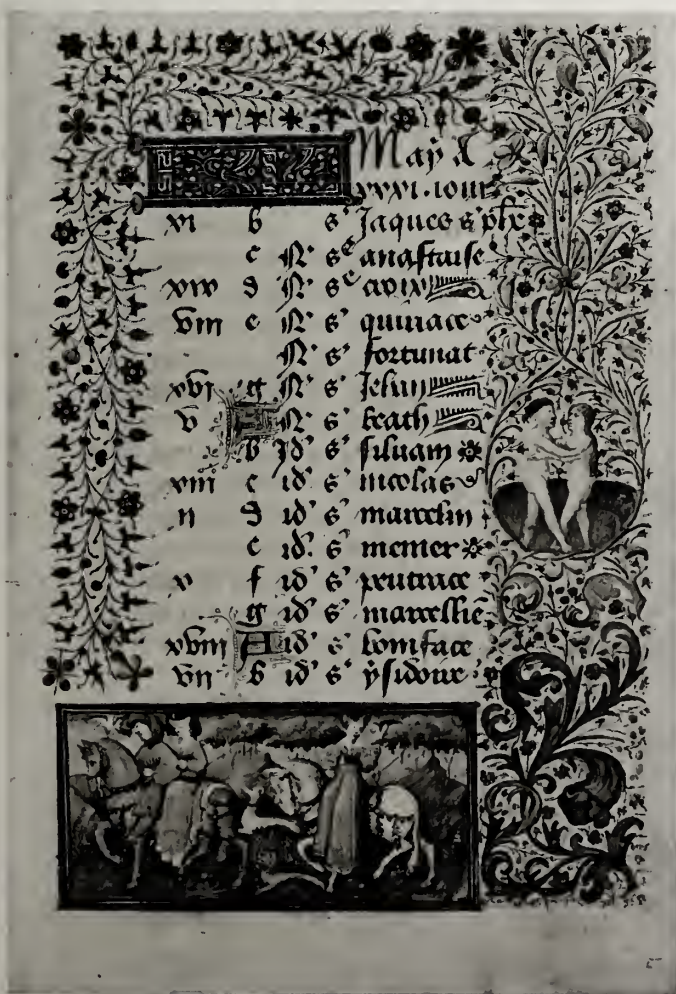 May a
xxxi. iour
xi b s' Jaques s' phe
c N' sᵉ anastaise
xix d N' sᵉ croix
viii e N' s' quiriace
N' s' fortunat
xvi g N' s' Jehan
v A N' s' beath
b Id' s'
xiii c id' s' nicolas
ii d id' s' marcelin
e id. s' memer
x f id' s'
g id' s'
xviii A id' s' boniface
vii b id' s' ysidoire